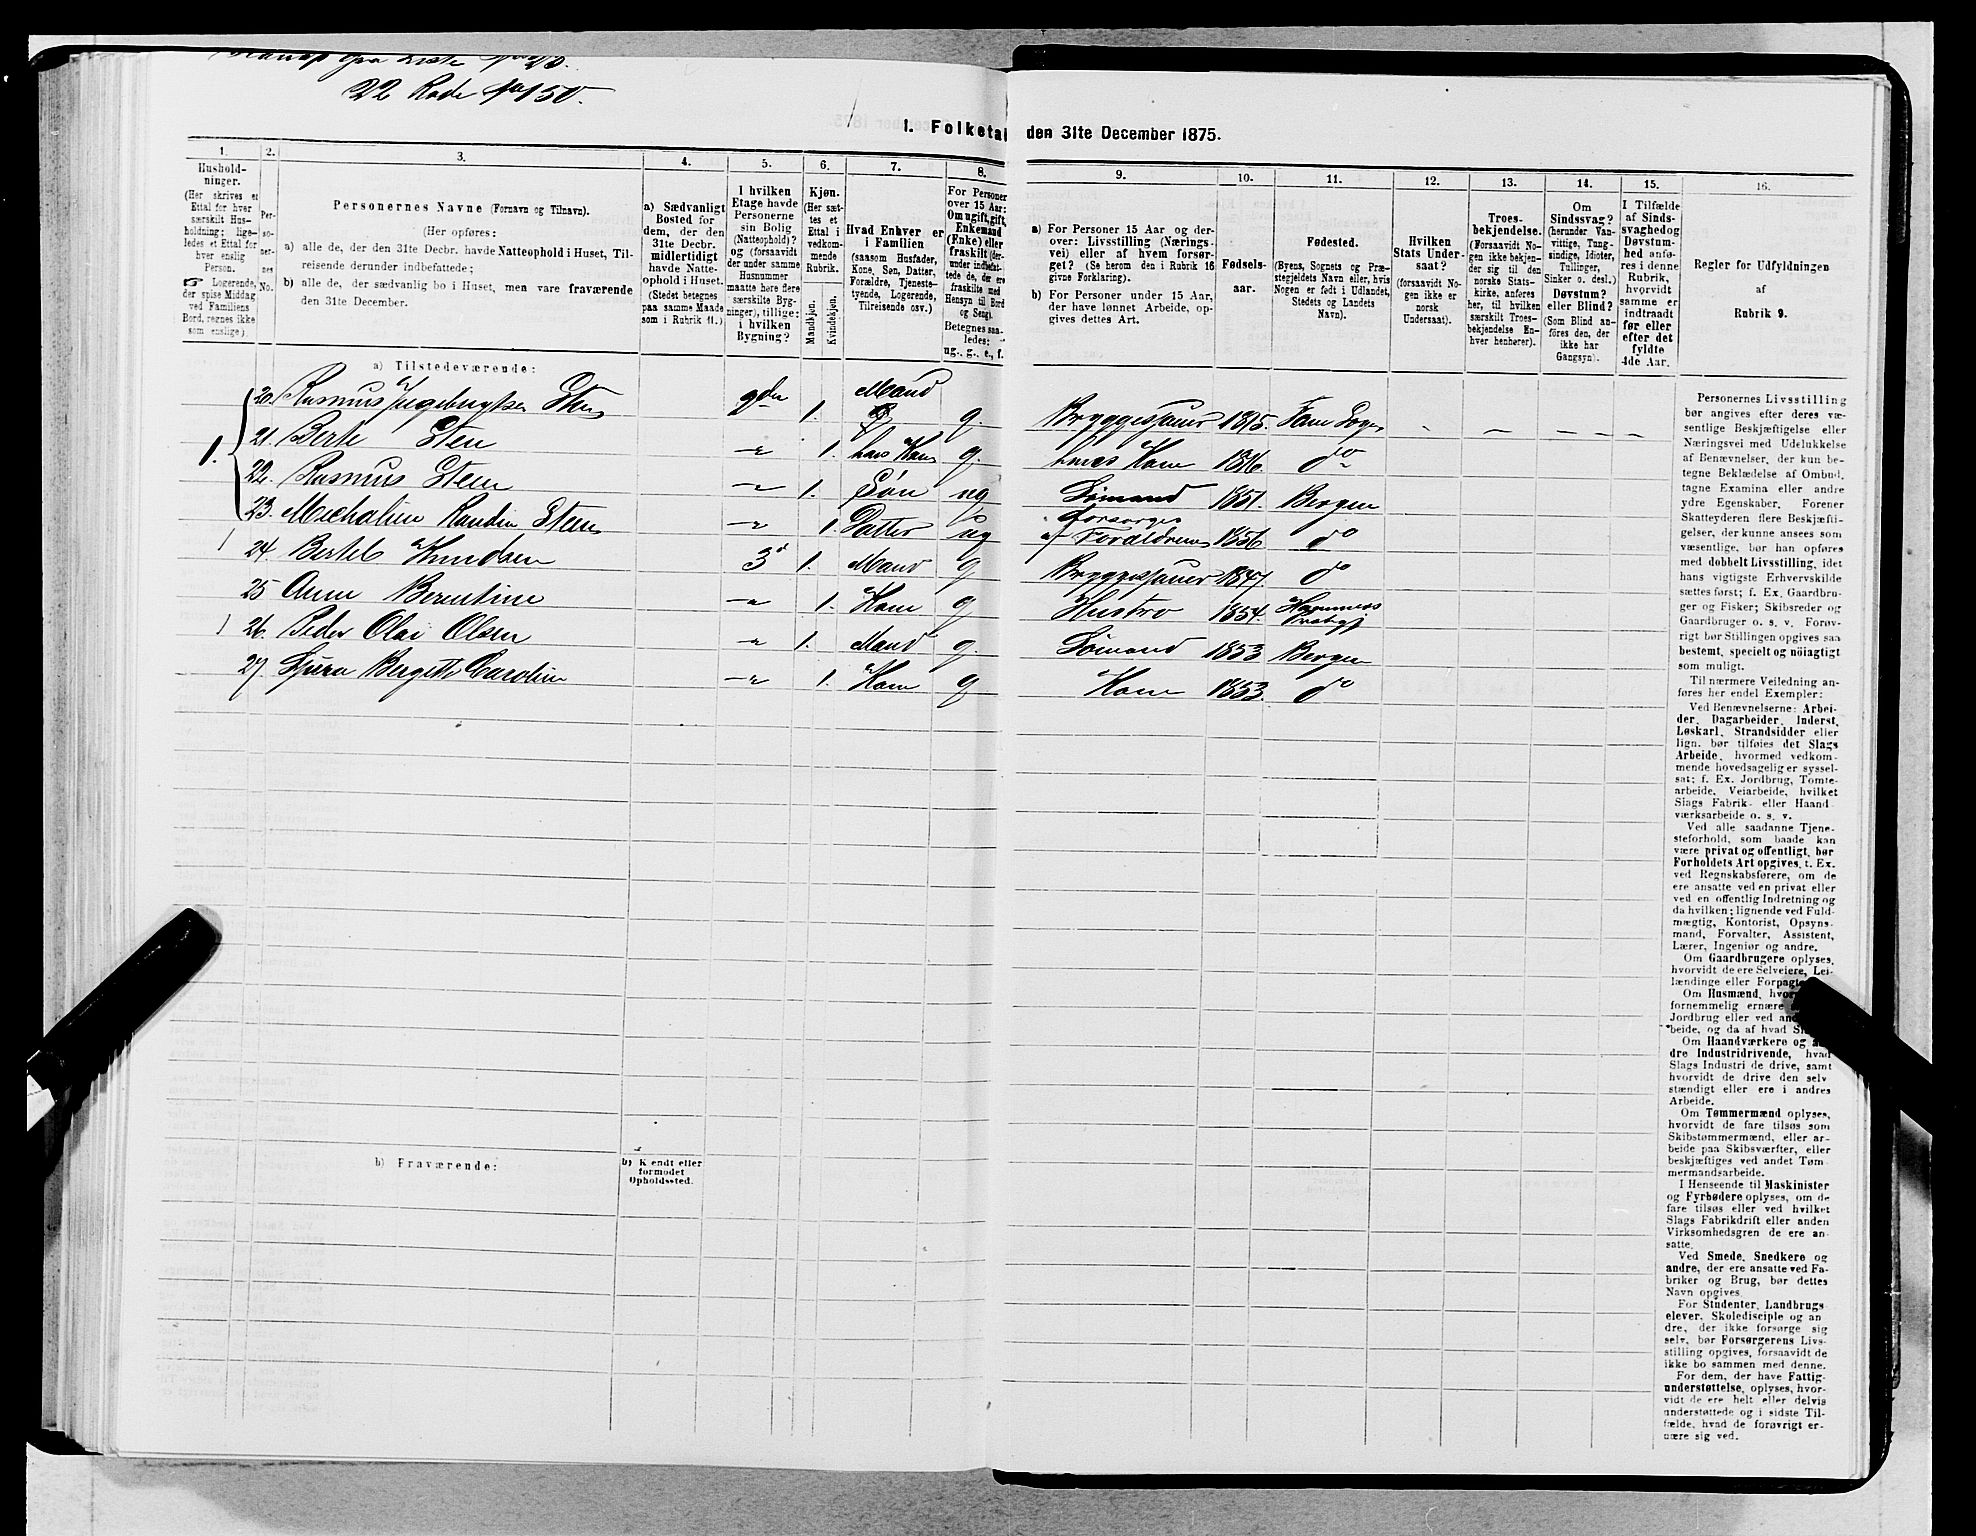 fra Liste
22 Rode No 150.
1. Folketal den 31te December 1875.
1. 2. 3. 4. 5. 6. 7. 8. 9. 10. 11. 12. 13. 14. 15. 16.
Hushold-
ninger.
(Her skrives et
Ettal for hver
særskilt Hus-
holdning; lige-
ledes et Ettal for
hver enslig
Person.
☛ Logerende,
der spise Middag
ved Familiens
Bord, regnes ikke
som enslige).
Per-
so-
ner-
nes
No.
Personernes Navne (Fornavn og Tilnavn).
(Her opføres:
a) alle de, der den 31te Decbr. havde Natteophold i Huset, Til-
reisende derunder indbefattede;
b) alle de, der sædvanlig bo i Huset, men vare fraværende
den 31te December.
a) Sædvanligt
Bosted for
dem, der den
31te Decbr.
midlertidigt
havde Natte-
ophold i Huset.
(Stedet betegnes
paa samme Maade
som i Rubrik 11.)
I hvilken
Etage havde
Personerne
sin Bolig
(Natteophold)?
og (forsaavidt
der under samme
Husnummer
maatte høre flere
særskilte Byg-
ninger), tillige:
i hvilken
Bygning?
Kjøn.
(Her sæt-
tes et
Ettal i
vedkom-
mende
Rubrik.
Mandkjøn.
Kvindekjøn.
Hvad Enhver er
i Familien
(saasom Husfader,
Kone, Søn, Datter,
Forældre, Tjeneste-
tyende, Logerende,
Tilreisende osv.)
For Personer
over 15 Aar:
Om ugift, gift,
Enkemand
(Enke) eller
fraskilt (der-
under indbefat-
tede de, der ere
fraskilte med
Hensyn til Bord
og Seng).
Betegnes saa-
ledes:
ug., g., e., f.
a) For Personer 15 Aar og der-
over: Livsstilling (Nærings-
vei) eller af hvem forsør-
get? (Se herom den i Rubrik 16
givne Forklaring).
b) For Personer under 15 Aar,
der have lønnet Arbeide, op-
gives dettes Art.
Fødsels-
aar.
Fødested.
(Byens, Sognets og Præ-
stegjeldets Navn eller, hvis
Nogen er født i Udlandet,
Stedets og Landets
Navn).
Hvilken
Stats Under-
saat?
(forsaavidt No-
gen ikke er
norsk
Undersaat).
Troes-
bekjendelse.
(Forsaavidt No-
gen ikke bekjen-
der sig til den
norske Stats-
kirke, anføres
her, til hvilken
særskilt Troes-
bekjendelse En-
hver henhører).
Om
Sindssvag?
(herunder Van-
vittige, Tung-
sindige, Idioter,
Tullinger,
Sinker o. desl.)
Døvstum?
eller Blind?
(Som Blind an-
föres den, der
ikke har
Gangsyn).
I Tilfælde
af Sinds-
svaghed og
Døvstum-
hed anfø-
res i denne
Rubrik,
hvorvidt
samme er
indtraadt
før eller
efter det
fyldte
4de Aar.
Regler for Udfyldningen
af
Rubrik 9.
a) Tilstedeværende:
20. Rasmus Ingebrigtsen Steen 1. Mand g. Bryggesjauer 1815.
1. 21. Berte Sten " 1. hans Kone g. hans Kone 1816. do
22. Rasmus Steen " 1. Søn ug Sømand 1851. Bergen
23. Steen " 1. Datter ug forsørges af Foreldrene 1856 do
1 24. Bertel Knudsen 3d 1. Mand g Bryggesjauer 1847. do
25 Anne Berentine " 1. Kone g Hustro 1854.
1 26. Peder Olai Olsen " 1. Mand g. Sømand 1853 Bergen
27. Bergette Caroline " 1. Kone g Kone 1853. do
b) Fraværende:
b) Kjendt eller
formodet
Opholdssted.
Personernes Livsstilling
bør angives efter deres væ-
sentlige Beskjæftigelse eller
Næringsvei med Udelukkelse
af Benævnelser, der kun be-
tegne Beklædelse af Ombud,
tagne Examina eller andre
ydre Egenskaber. Forener
Skatteyderen flere Beskjæfti-
gelser, der kunne ansees som
væsentlige, bør han opføres
med dobbelt Livsstilling, idet
hans vigtigste Erhvervskilde
sættes først; f. Ex. Gaardbru-
ger og Fisker; Skibsreder og
Gaardbruger o. s. v. Forøv-
rigt bør Stillingen opgives saa
bestemt, specielt og nöiagtigt
som muligt.
Til nærmere Veiledning an-
føres her endel Exempler:
Ved Benævnelserne: Arbei-
der, Dagarbeider, Inderst,
Løskarl, Strandsidder eller
lign. bør tilføies det Slags
Arbeide, hvormed vedkom-
mende hovedsagelig er syssel-
sat; f. Ex. Jordbrug, Tomte-
arbeide, Veiarbeide, hvilket
Slags Fabrik- eller Haand-
værksarbeide o. s. v.
Ved alle saadanne Tjene-
steforhold, som baade kan
være privat og offentligt, bør
Forholdets Art opgives, t. Ex.
ved Regnskabsførere, om de
ere ansatte ved en privat eller
ved en offentlig Indretning og
da hvilken; lignende ved Fuld-
mægtig, Kontorist, Opsyns-
mand, Forvalter, Assistent,
Lærer, Ingeniør og andre.
Om Gaardbrugere oplyses,
hvorvidt de ere Selveiere, Lei-
lændinge eller
Om Husmænd,
fornemmelig ernære
Jordbrug eller ved
beide, og da af hvad
Om Haandværkere og an-
dre Industridrivende, hvad
Slags Industri de drive, samt
hvorvidt de drive den selv-
stændigt eller ere i andres
Arbeide.
Om Tømmermænd oplyses,
hvorvidt de fare tilsøs som
Skibstømmermænd, eller ar-
beide paa Skibsværfter, eller
beskjæftiges ved andet Tøm-
mermandsarbeide.
I Henseende til Maskinister
og Fyrbødere oplyses, om de
fare tilsøs eller ved hvilket
Slags Fabrikdrift eller anden
Virksomhedsgren de ere an-
satte.
Ved Smede, Snedkere og
andre, der ere ansatte ved Fa-
briker og Brug, bør dettes
Navn opgives.
For Studenter, Landbrugs-
elever, Skoledisciple og an-
dre, der ikke forsørge sig
selv, bør Forsørgerens Livs-
stilling opgives, forsaavidt de
ikke bo sammen med denne.
For dem, der have Fattig-
understøttelse, oplyses, hvor-
vidt de ere helt eller delvis
understøttede og i sidste Til-
fælde, hvad de forøvrigt er-
nære sig ved.